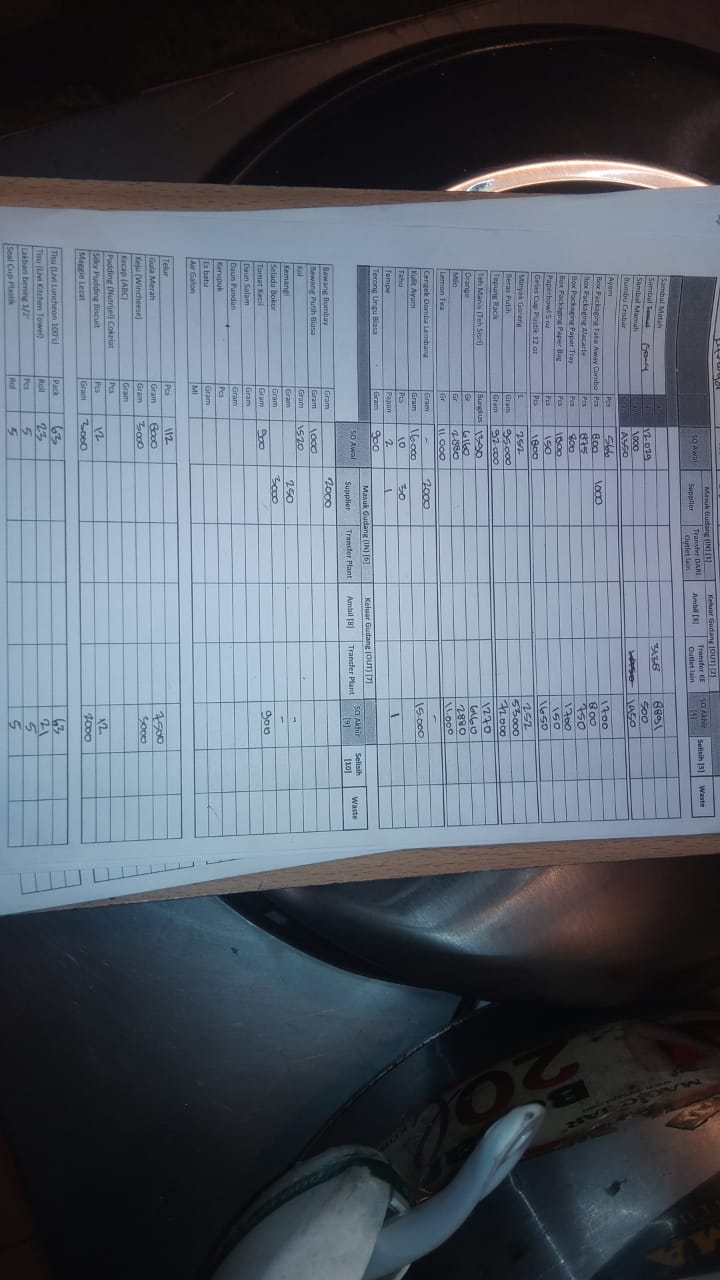 Masuk Gudang (IN) [1] Keluar Gudang (OUT) [2]
SO Awal Supplier Transfer DARI Outlet lain Ambil [3] Transfer KE Outlet lain SO Akhir Selisih [5] Waste
Sambal Matah
Sambal 12.029 3138 8891
Sambal Mamah 1000 500
Bumbu Crisbar
Ayam Pcs 566 1700
Box Packaging Take Away Combo Pcs 800 1000 800
Box Packaging Alacarte Pcs 875 750
Box Packaging Paper Tray Pcs 800
Box Packaging Paper Bag Pcs 1800 1700
Paperbowl 5 oz Pcs 150 150
Gelas Cup Plastik 12 oz Pcs 1800 1650
Minyak Goreng L 252 252
Beras Putih Gram 95.000 53.000
Tepung Racik Gram 92.000
Teh Manis (Teh Sisri) Bungkus 1390 1270
Orange Gr 6160 6160
Milo Gr 2880 2880
Lemon Tea Gr 11.000 11.000
Cengek Domba Lembang Gram - 2000 -
Kulit Ayam Gram 16.000 15.000
Tahu Pcs 10 30
Tempe Papan 2 1 1
Terong Ungu Biasa Gram 900
Masuk Gudang (IN) [6] Keluar Gudang (OUT) [7]
SO Awal Supplier Transfer Plant Ambil [8] Transfer Plant SO Akhir [9] Selisih [10] Waste
Bawang Bombay Gram 2000
Bawang Putih Biasa Gram 1.000
Kol Gram 1520
Kemangi Gram 250 -
Selada Bokor Gram 3000 -
Tomat Kecil Gram 900 900
Daun Salam Gram
Daun Pandan Gram
Kerupuk Pcs
Es batu Gram
Air Galon Ml
Telur Pcs 112
Gula Merah Gram 8000 7500
Keju (Wincheese) Gram 3000 3000
Kecap (ABC) Gram
Pudding (Nutrijel) Cokelat Pcs
Silky Pudding Biscuit Pcs 12 12
Maggie Lezat Gram 3000 3000
Tisu (Livi Luncheon 100's) Pack 63 63
Tisu (Livi Kitchen Towel) Roll 23 21
Lakban bening 1/2" Pcs 5 5
Seal Cup Plastik Rol 5 5
20
MAGIC JAR